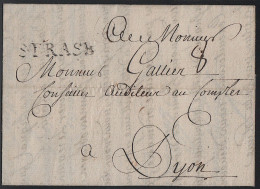 A Monsieur
STRASB
Monsieur Gallier 8
Conseiller Auditeur au Comptes
a
Dyon